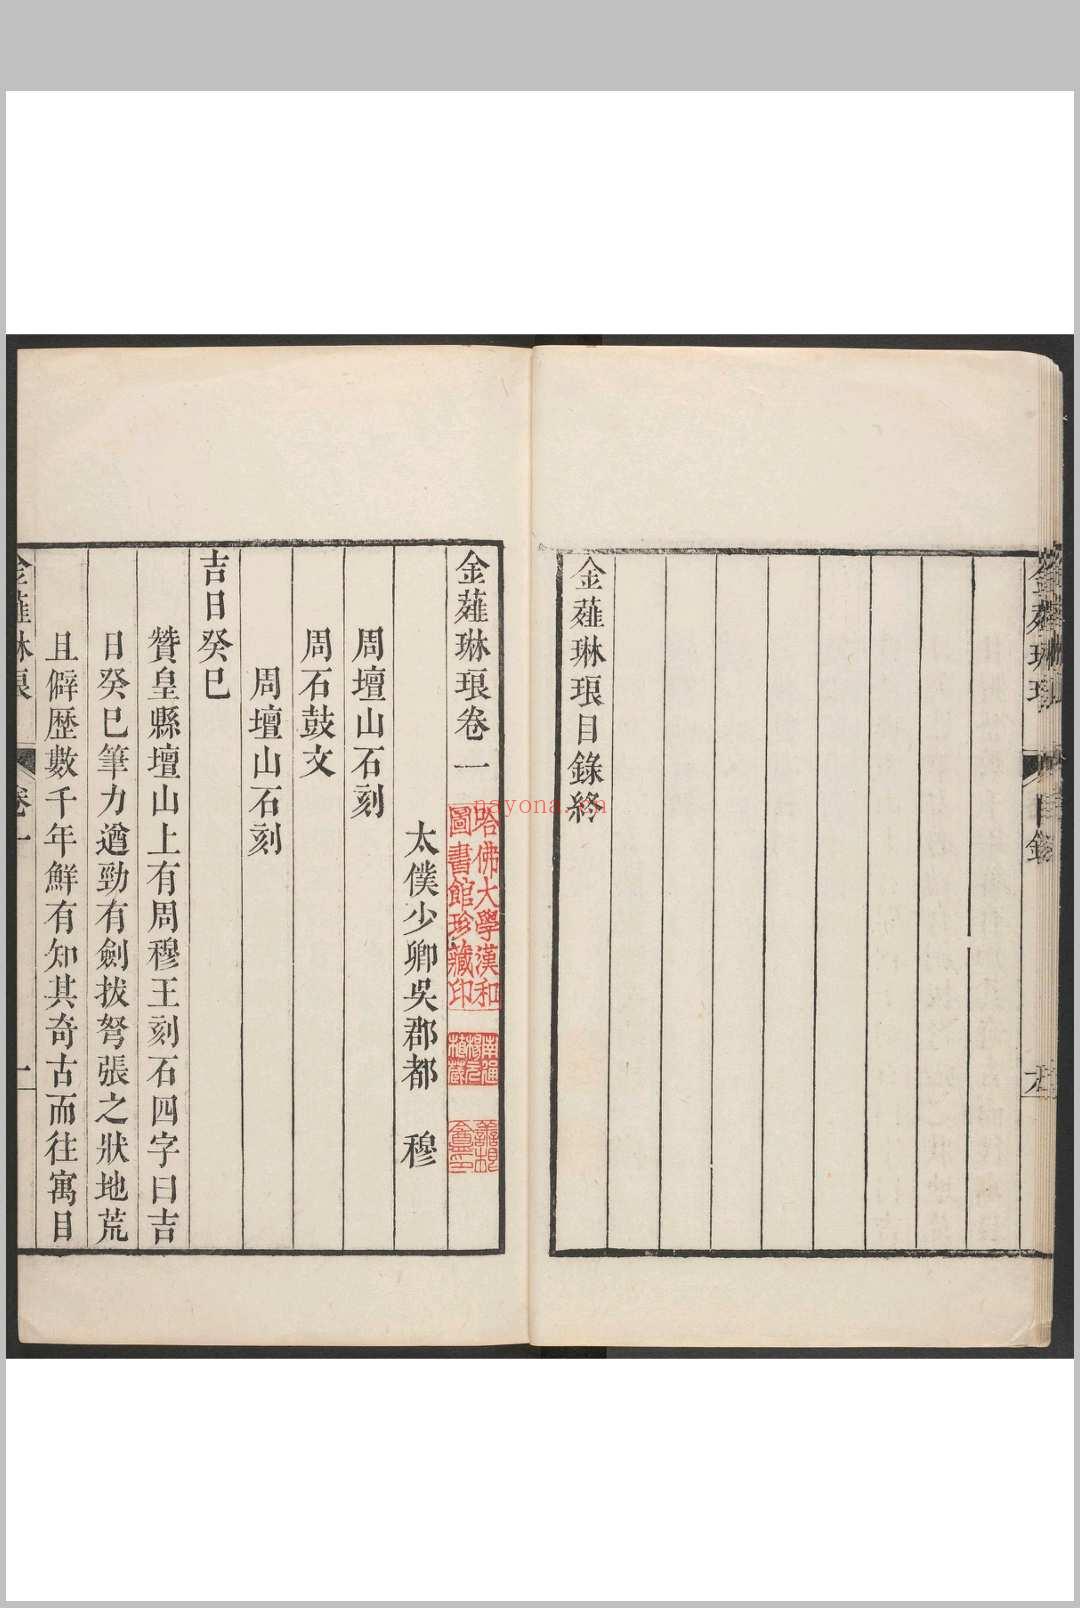 金薤琳琅
目錄
金薤琳琅目錄終
金薤琳琅卷一
哈佛大學漢和
圖書館珍藏印
nayona.cn
太僕少卿吳郡都　穆
周壇山石刻
周石鼓文
周壇山石刻
吉日癸巳
贊皇縣壇山上有周穆王刻石四字曰吉
日癸巳筆力遒勁有劍拔弩張之狀地荒
且僻歷數千年鮮有知其奇古而往寓目
金薤琳琅
卷一
一